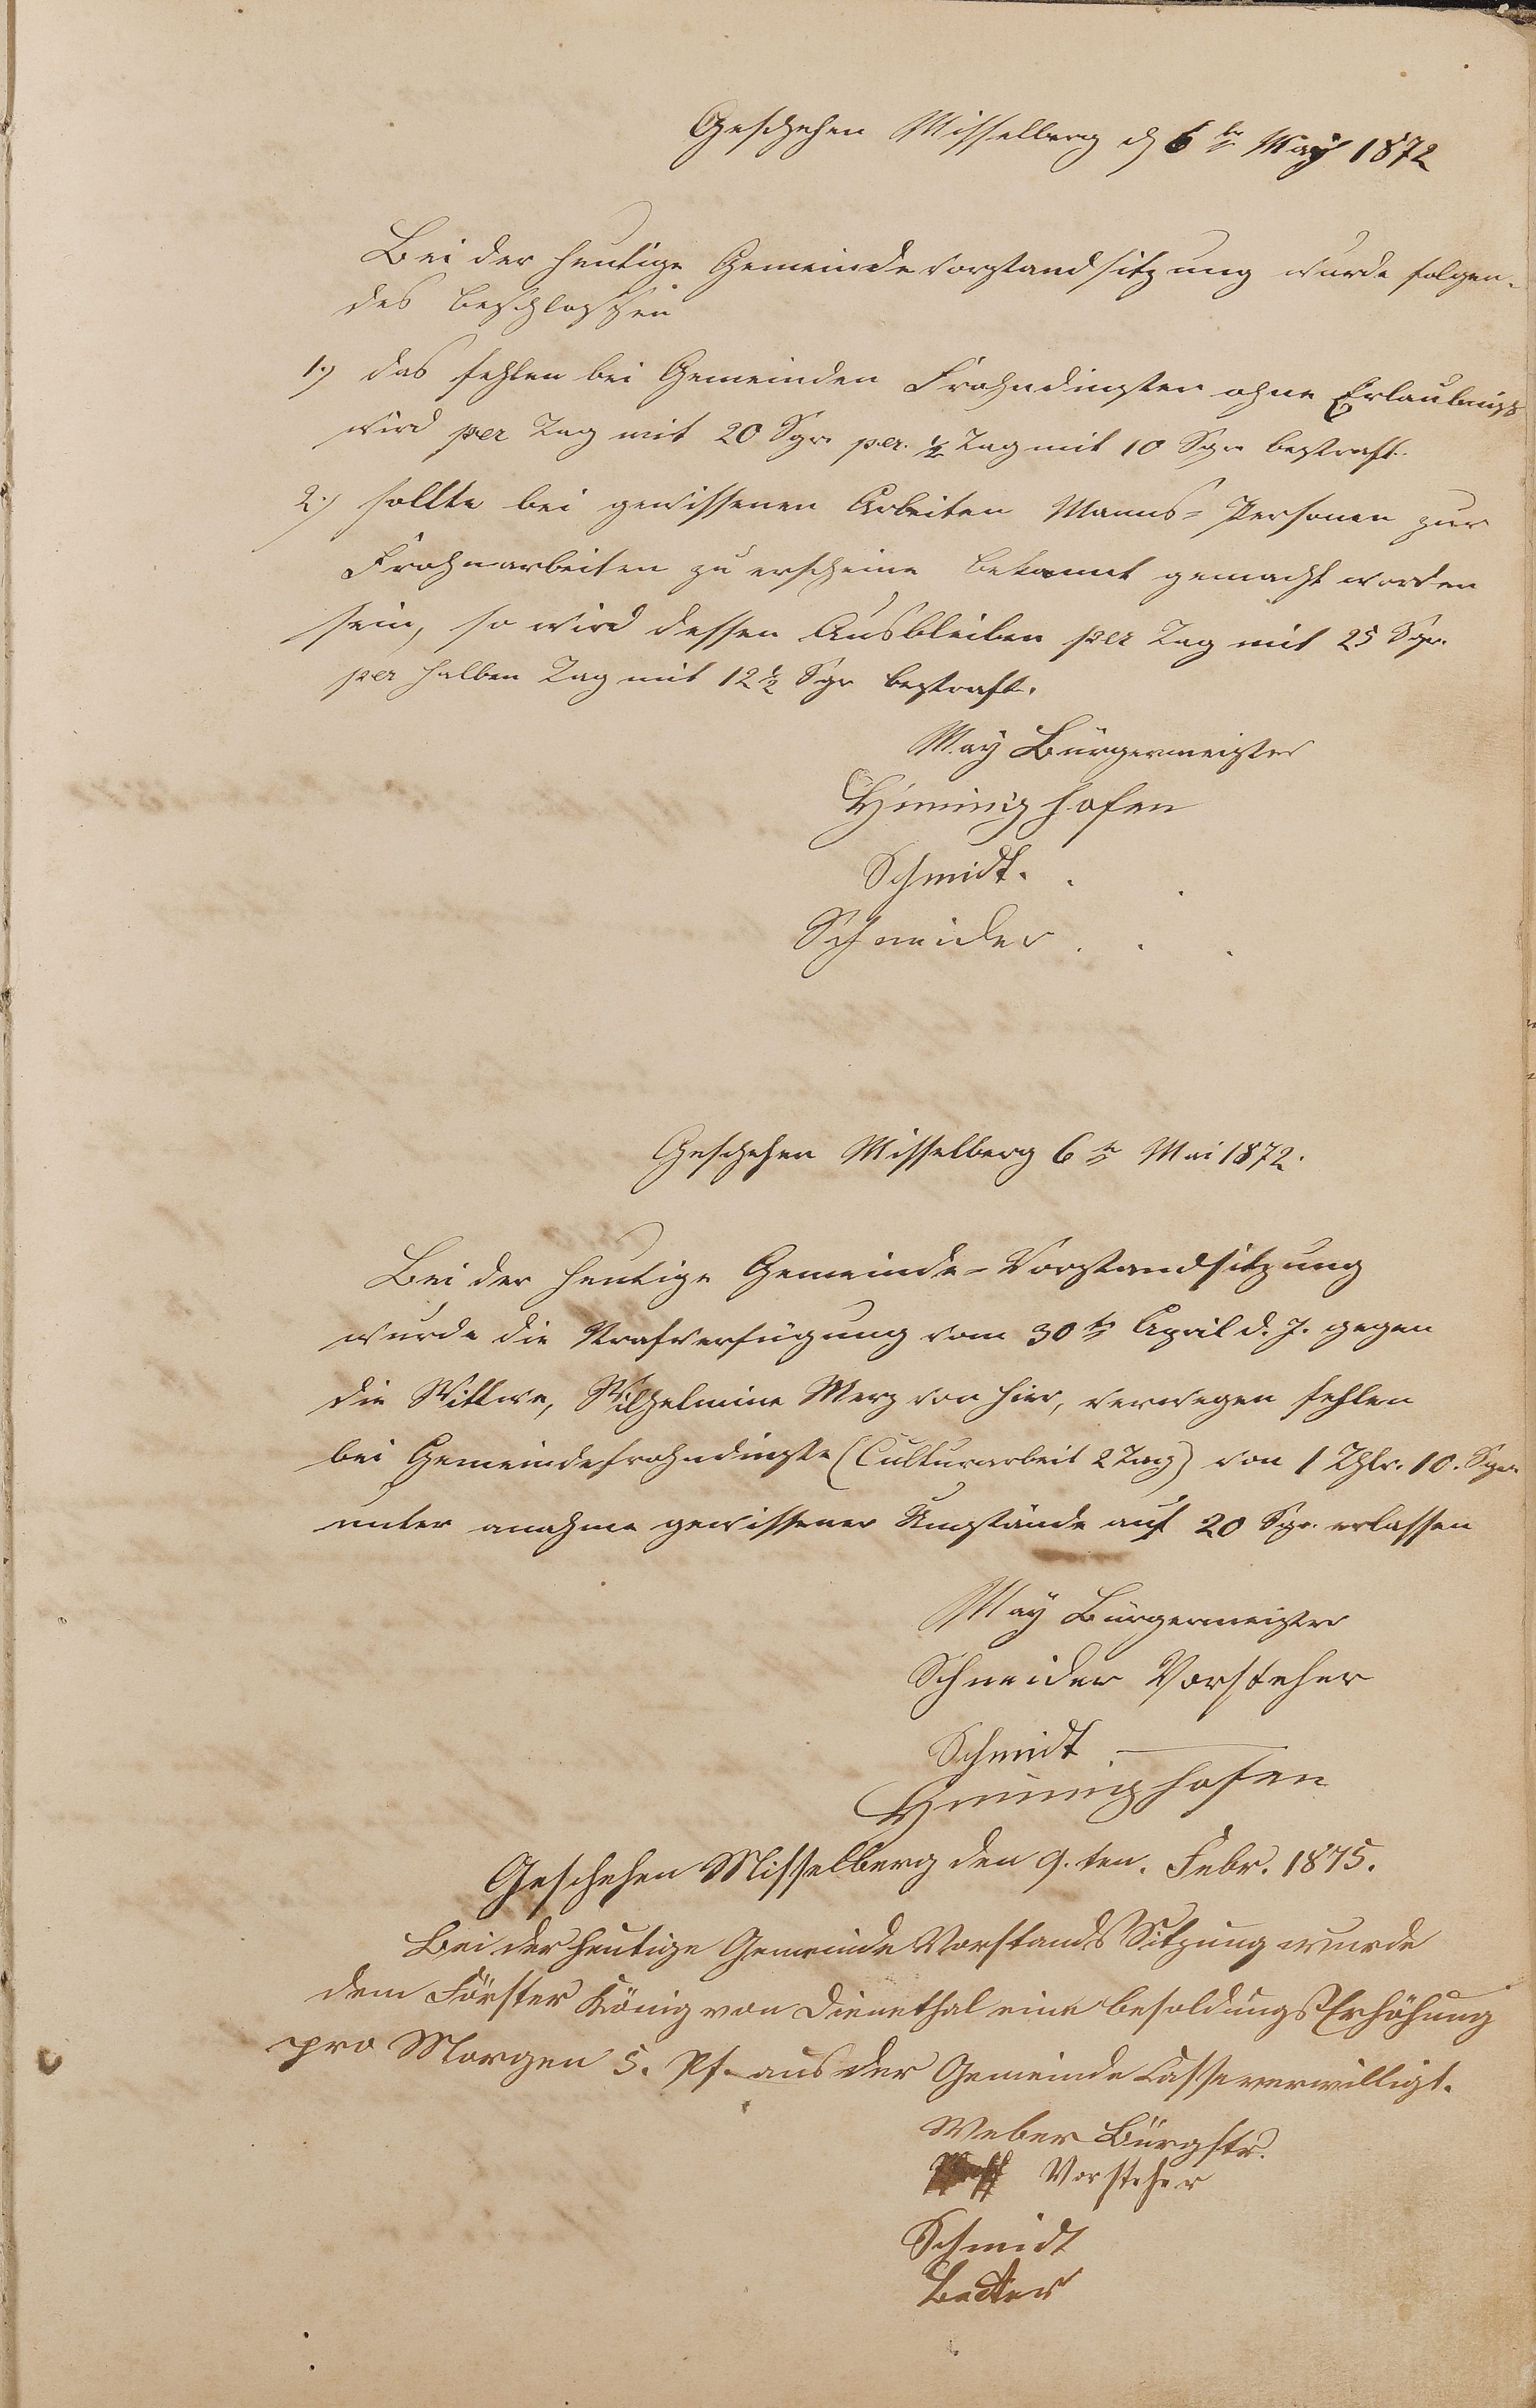 Geschehen Misselberg d 6ten May 1872
Bei der heutige Gemeindevorstandsitzung wurde folgen-
des beschlossen
1.) das fehlen bei Gemeinden Frohndinsten ohne Erlaubniß
wird per Tag mit 20 Sgr. per. ½ Tag mit 10 Sgr. bestraft.
2.) sollte bei gewissenen Arbeiten Manns-Personen zur
Frohnarbeiten zu erscheine bekannt gemacht worden
sein, so wird dessen Ausbleiben per Tag mit 25 Sgr.
per halben Tag mit 12½ Sgr bestraft.
May Bürgermeister
Schmidt.
Schneider
Geschehen Misselberg 6ten Mai 1872.
Bei der heutige Gemeinde-Vorstandsitzung
wurde die Strafverfügung vom 30ten April d. J. gegen
die Wittwe, Wilhelmine Merz von hier, verwegen fehlen
bei Gemeindefrohndinste (Culturarbeit 2 Tag) von 1 Thlr. 10. Sgr.
unter anahme gewissener Umstände auf 20 Sgr. erlassen
May Bürgermeister
Schneider Vorsteher
Schmidt
Geschehen Misselberg den 9. ten. Febr. 1875.
Bei der heutige Gemeinde Vorstands Sitzung wurde
dem Förster König von Dienethal eine besoldungs Erhöhung
pro Morgen 5. Pf. aus der Gemeinde Casse verwilligt.
Weber Bürgstr.
Vorsteher
Schmidt